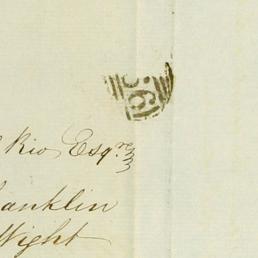 Rio Esqre
anklin
Wight